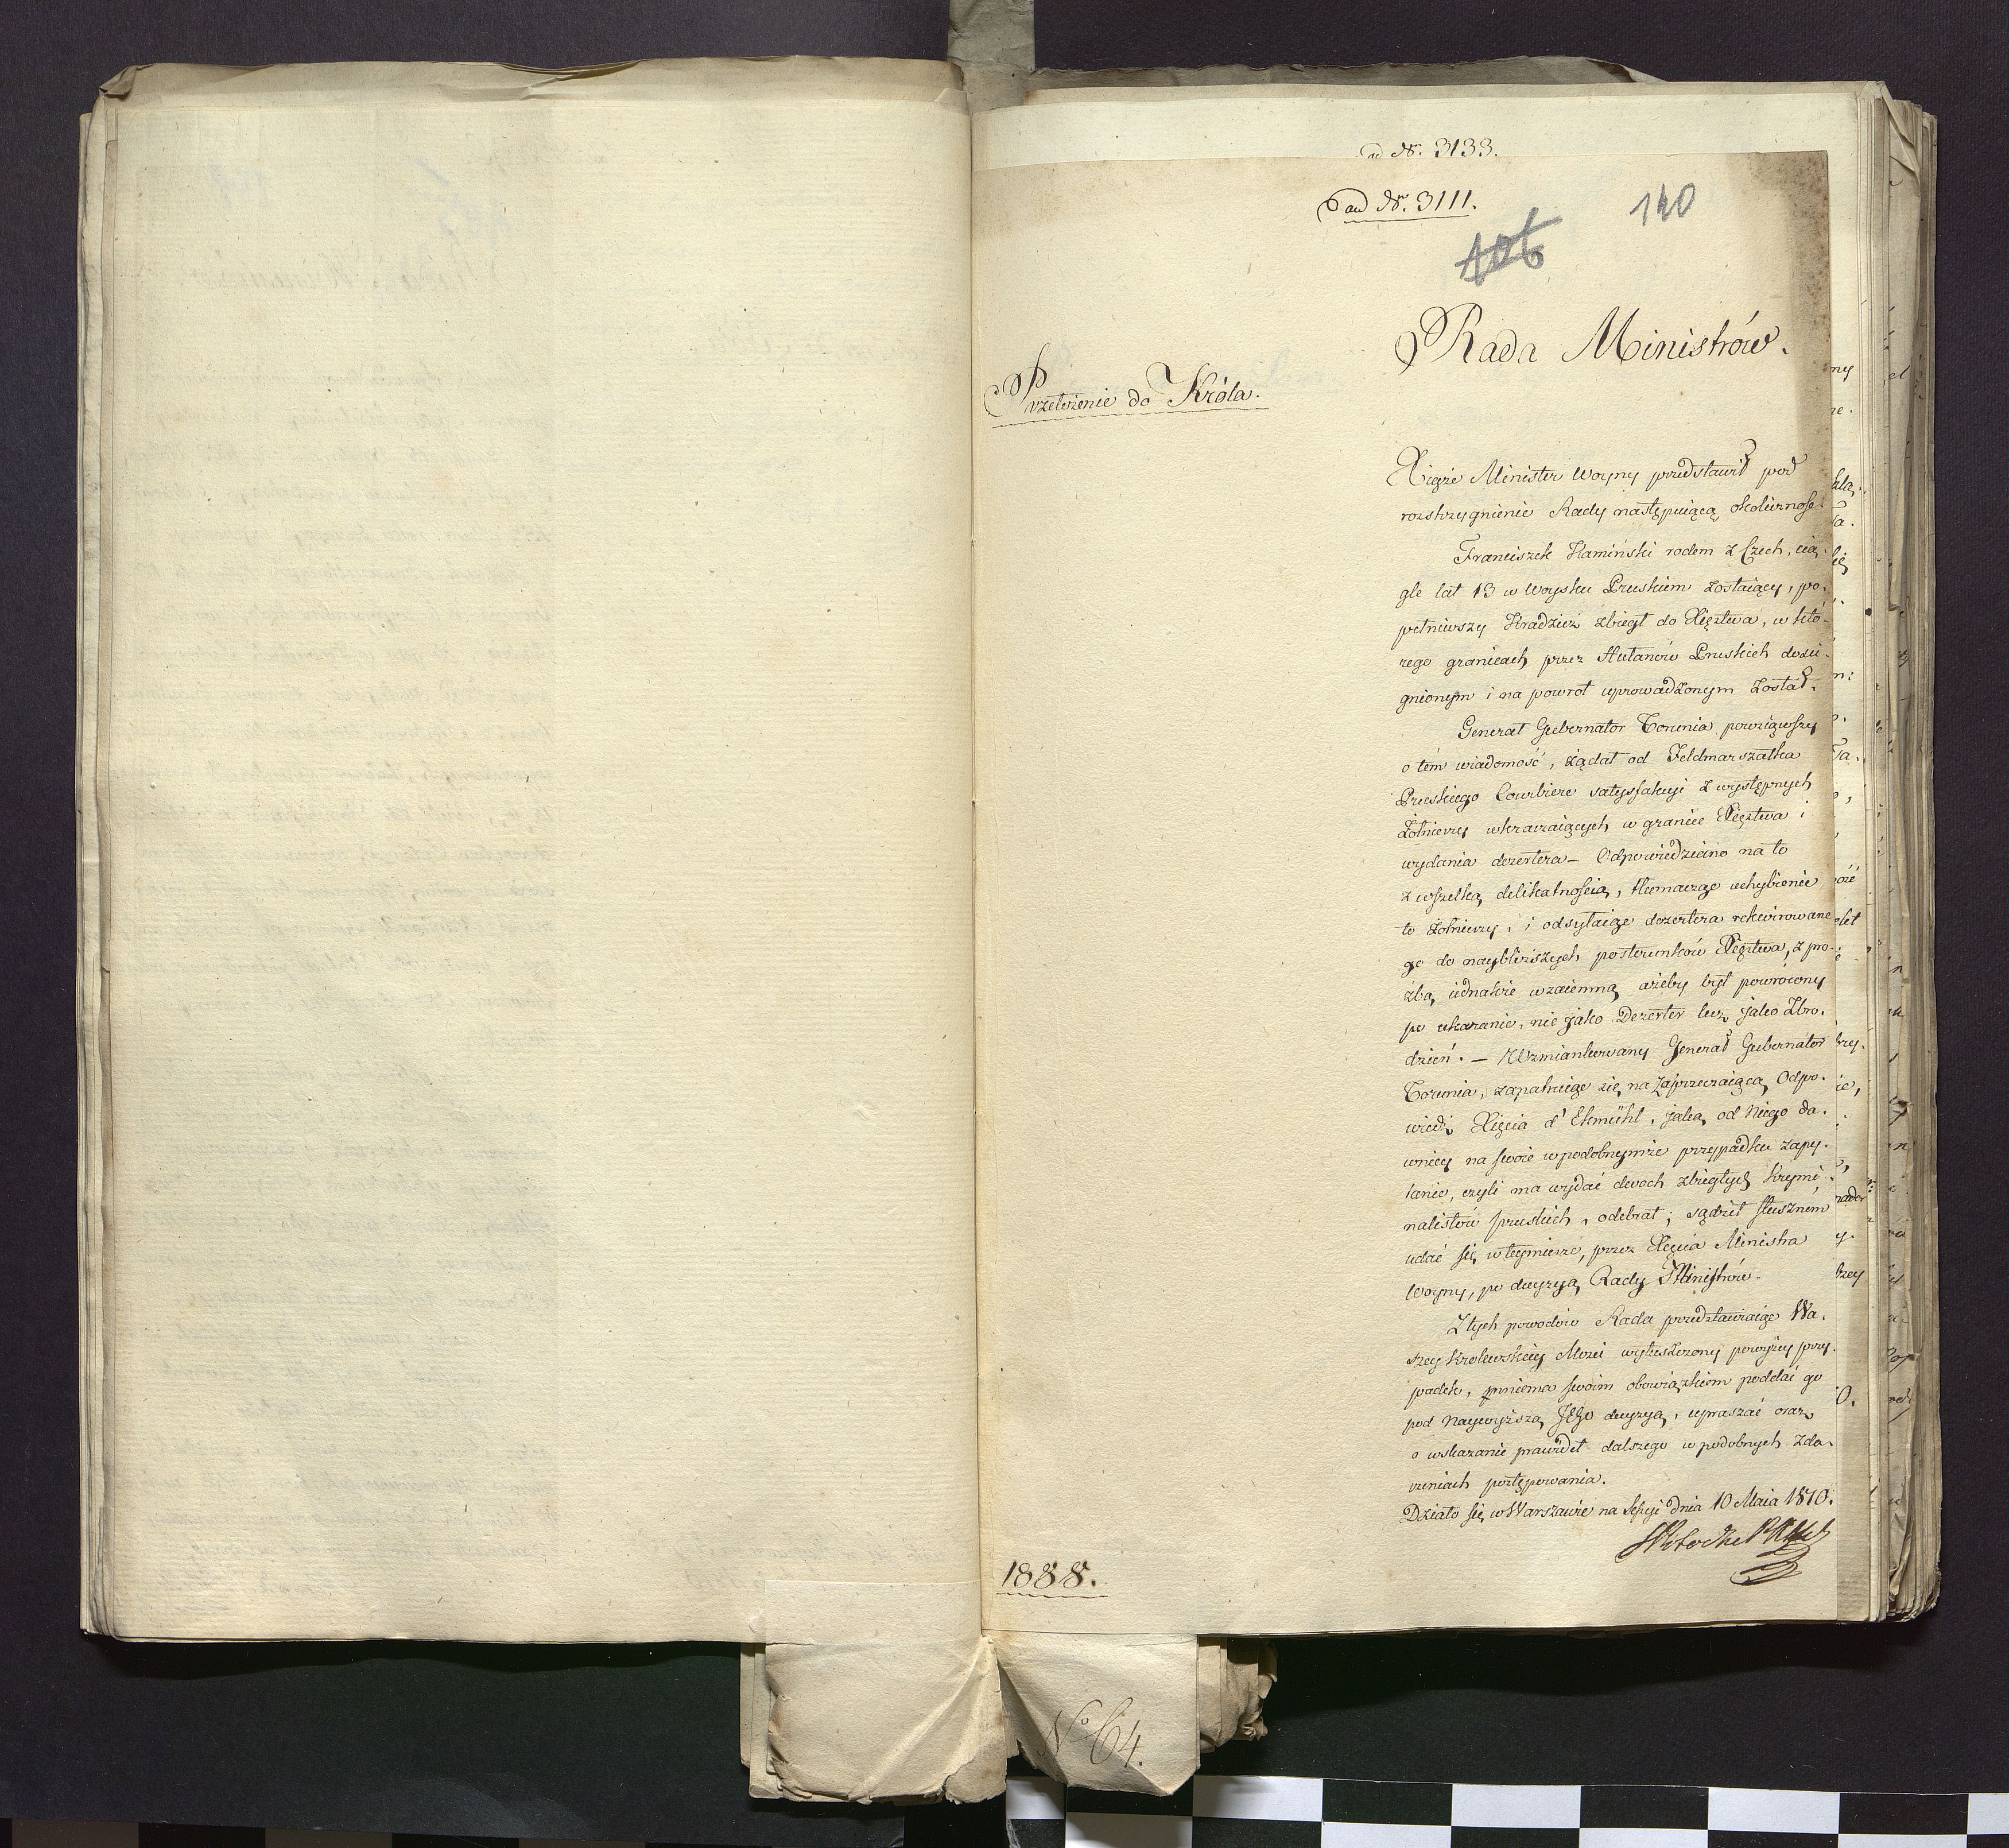 ad Nr. 3133.
ad Nr. 3111.
140
106
Rada Ministrów.
Przełożenie do Króla.
Xiąże Minister Woyny przedstawił pod
rozstrzygnienie Rady następuiącą okoliczność.
Franciszek Kamiński rodem z Czech, cią-
gle lat 13 w Woysku Pruskiem zostaiący, po-
pełniwszy kradzież zbiegł do Xięztwa, w któ-
rego granicach przez Hułanów Pruskich dości-
gnionym i na powrót uprowadzonym został.
Generał Gubernator Torunia powziąwszy
o tém wiadomość, żądał od Feldmarszałka
Pruskiego Courbiere satysfakcyi z występnych
Żołnierzy wkraczaiących w granice Xięztwa i
wydania dezertera – Odpowiedziano na to
z wszelką delikatnością, tłomacząc uchybienie
to żołnierzy, i odsyłaiąc dezertera rekwirowane
go do naybliższych posterunków Xięztwa, z pro-
źbą iednakże wzaiemną ażeby był powrócony
po ukaranie, nie jako Dezerter lecz jako Zbro-
dzień. – Wzmiankowany Generał Gubernator
Torunia, zapatruiąc się na zaprzeczaiącą Odpo-
wiedź Xięcia d'Ekmühl, jaką od Niego da-
wniey na swoie w podobnymże przypadku zapy-
tanie, czyli ma wydać dwóch zbiegłych Krymi-
nalistów pruskich, odebrał; sądził słusznem
udać się w teymierze, przez Xięcia Ministra
Woyny, po decyzyą Rady Ministrów.
Z tych powodów Rada przedstawiaiąc Wa-
szey Królewskiey Mości wyłuszczony powyżey przy-
padek, mniema swoim obowiązkiem poddać go
pod Naywyższą Jego decyzyą, upraszać oraz
o wskazanie prawideł dalszego w podobnych zda-
rzeniach postępowania.
Działo się w Warszawie na Sessyi dnia 10 Maia 1810.
1888.
No 64.